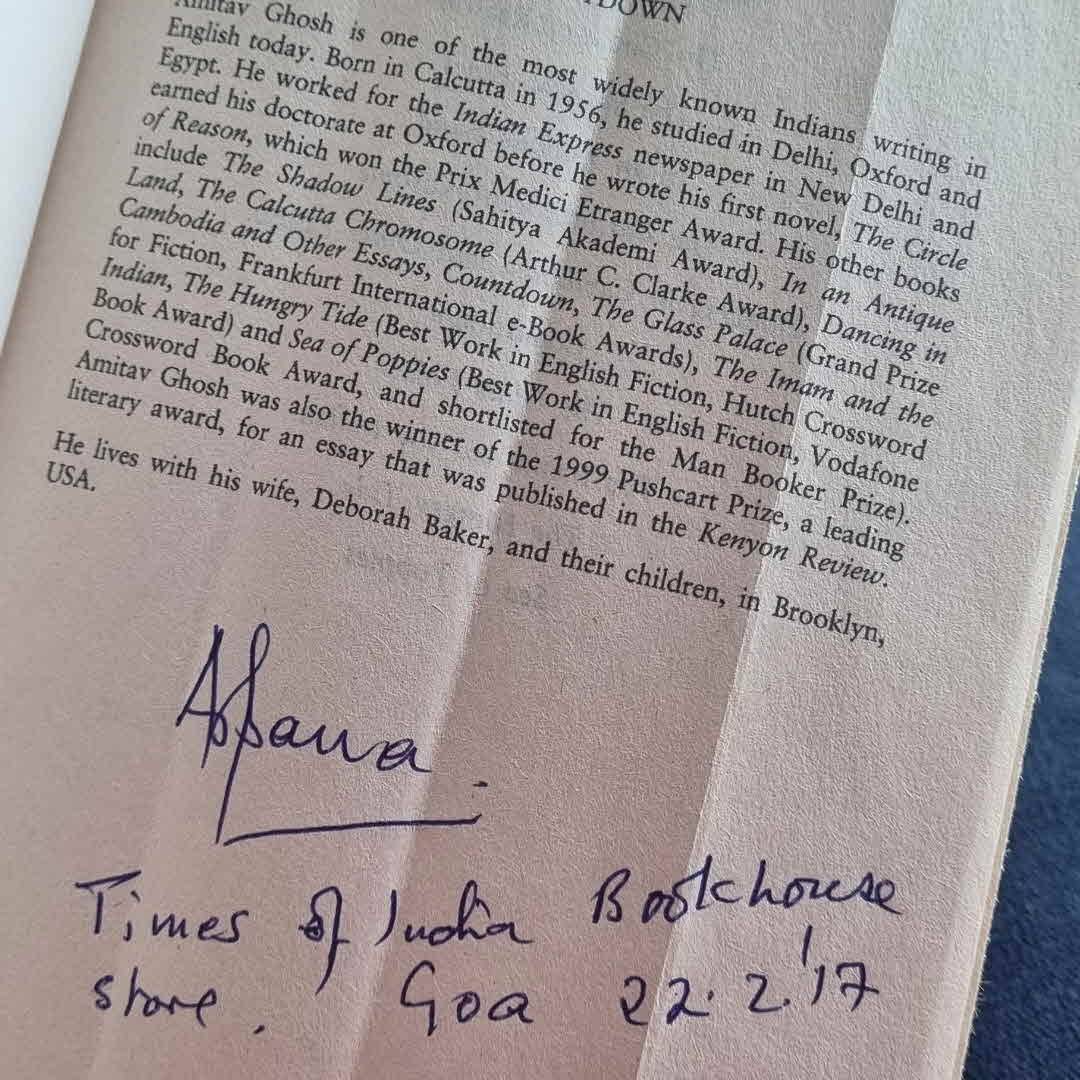 TDOWN
Amitav Ghosh is one of the most widely known Indians writing in
English today. Born in Calcutta in 1956, he studied in Delhi, Oxford and
Egypt. He worked for the Indian Express newspaper in New Delhi and
earned his doctorate at Oxford before he wrote his first novel, The Circle
of Reason, which won the Prix Medici Etranger Award. His other books
include The Shadow Lines (Sahitya Akademi Award), In an Antique
Land, The Calcutta Chromosome (Arthur C. Clarke Award), Dancing in
Cambodia and Other Essays, Countdown, The Glass Palace (Grand Prize
for Fiction, Frankfurt International e-Book Awards), The Imam and the
Indian, The Hungry Tide (Best Work in English Fiction, Hutch Crossword
Book Award) and Sea of Poppies (Best Work in English Fiction, Vodafone
Crossword Book Award, and shortlisted for the Man Booker Prize).
Amitav Ghosh was also the winner of the 1999 Pushcart Prize, a leading
literary award, for an essay that was published in the Kenyon Review.
He lives with his wife, Deborah Baker, and their children, in Brooklyn,
USA.
Times of India Bookhouse
store. Goa 22.2.'17